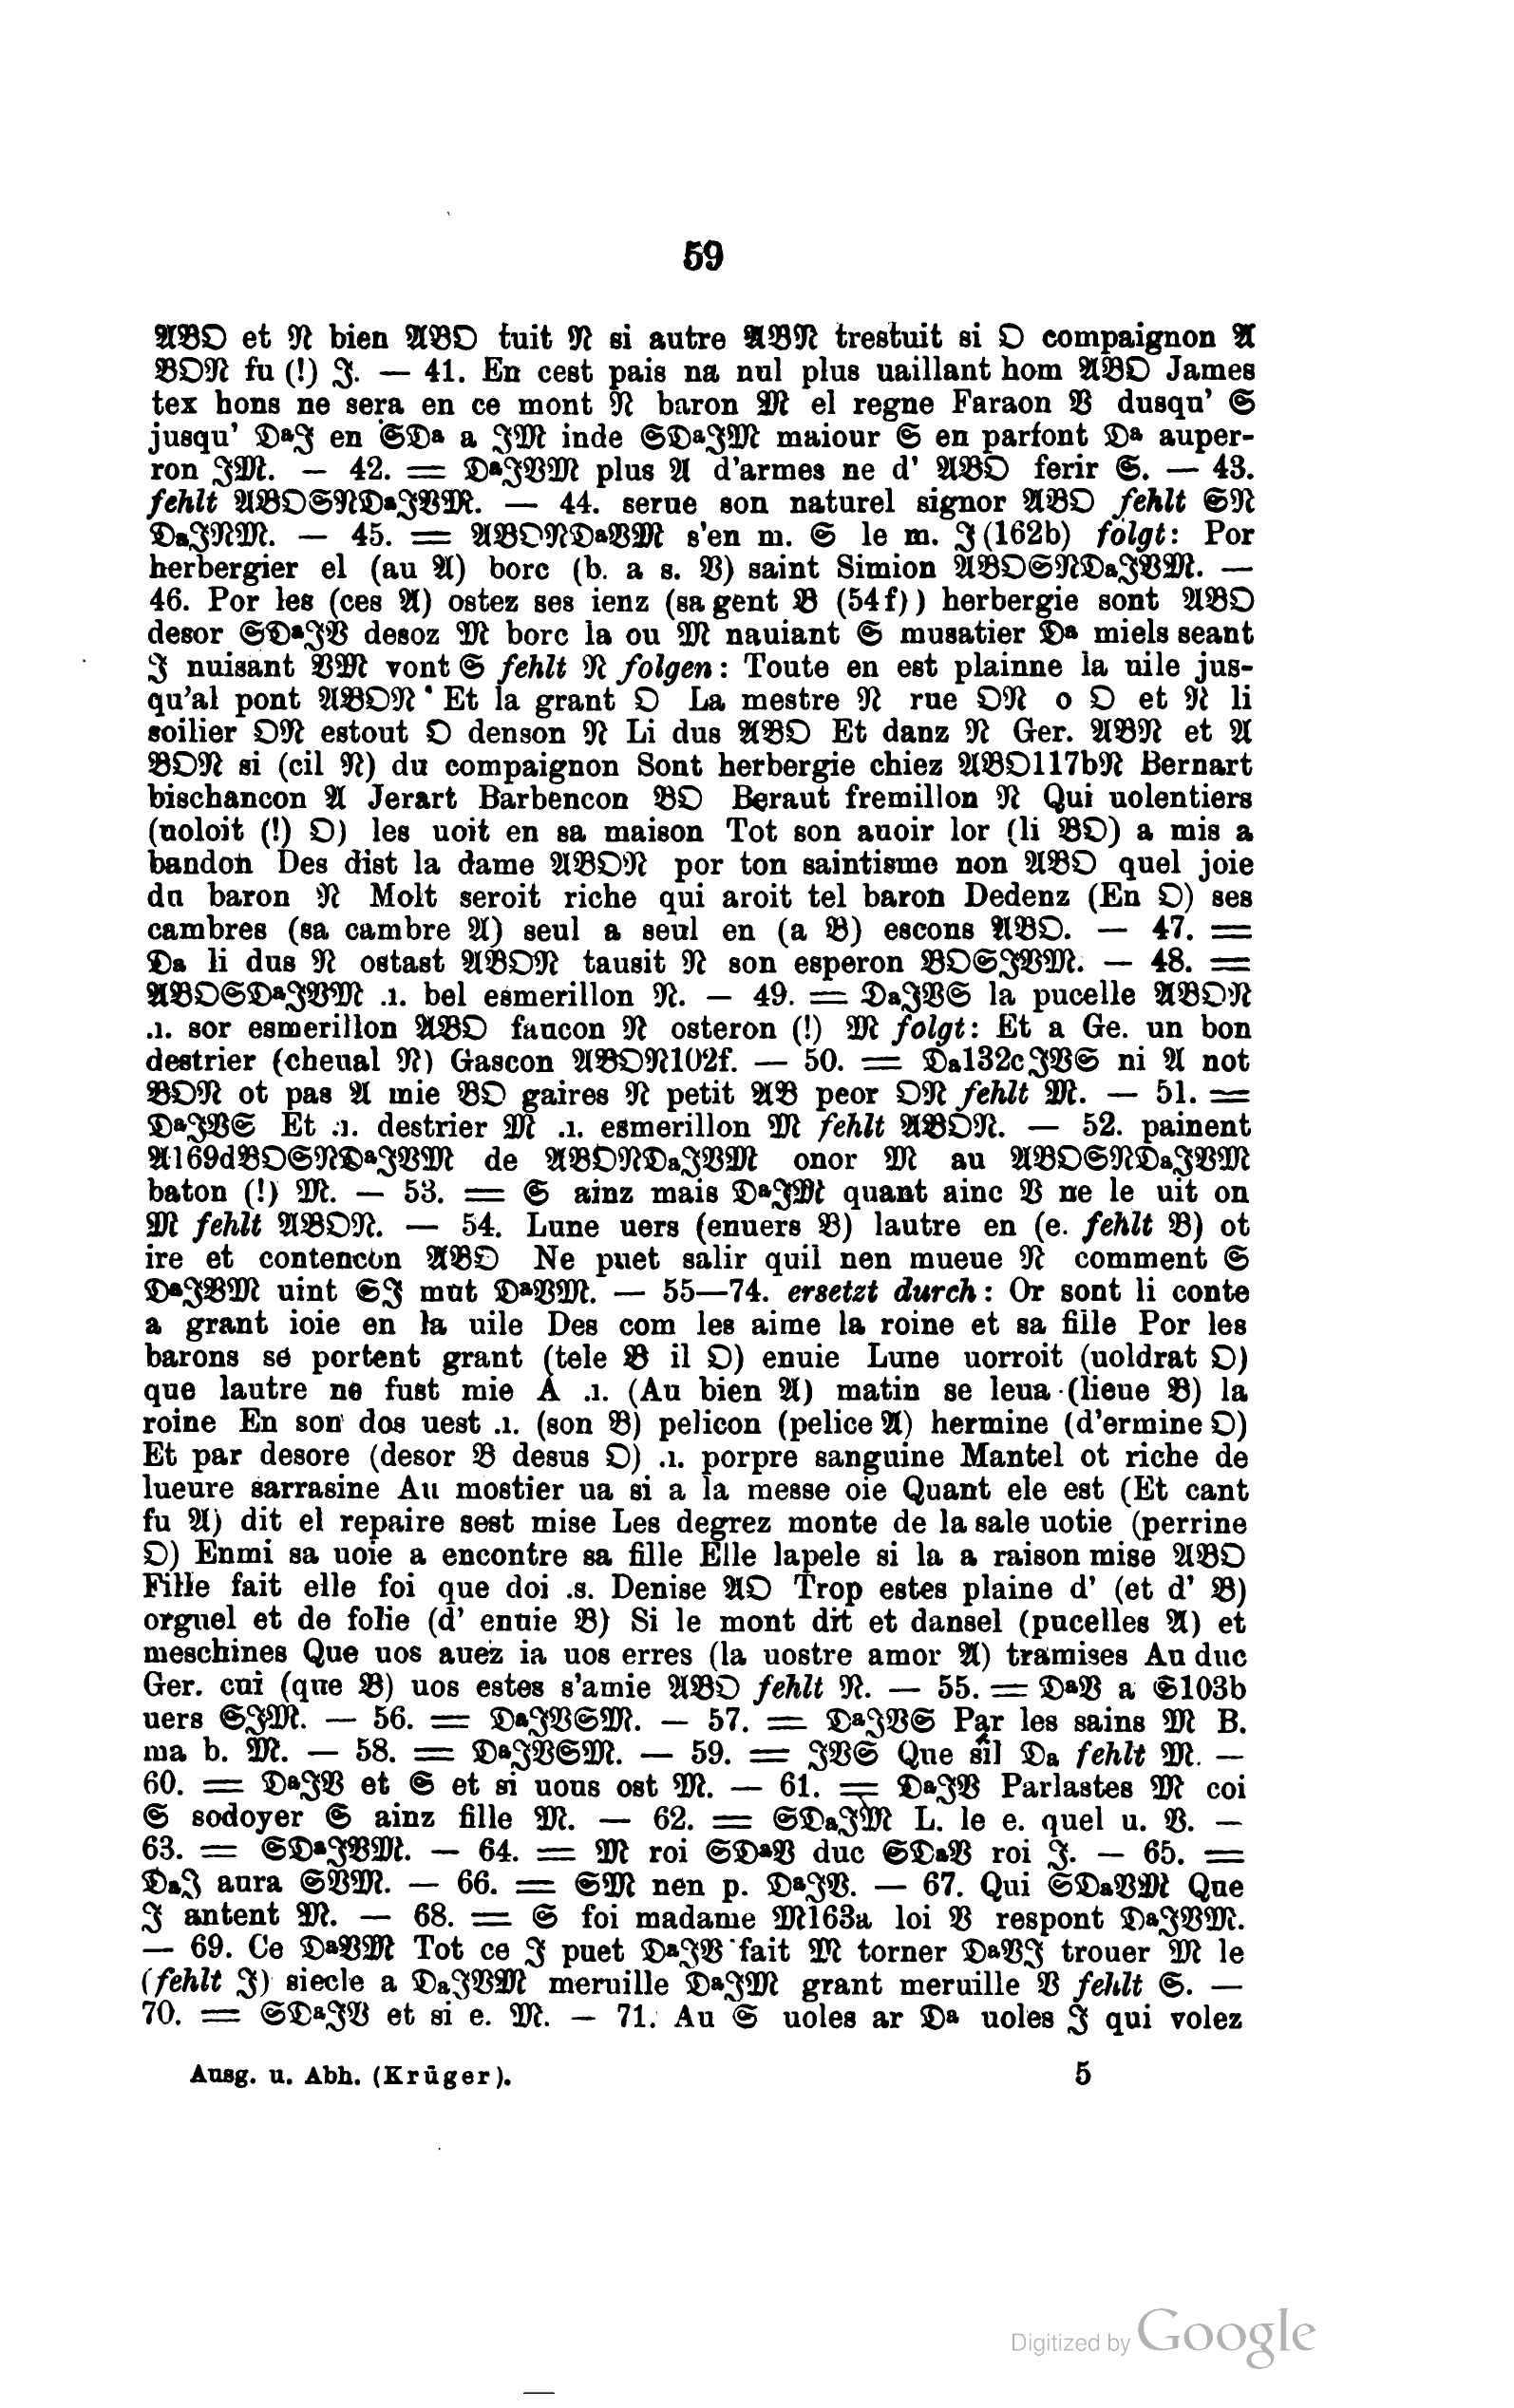 59
𝔄𝔅𝔒 et 𝔑 bien 𝔄𝔅𝔒 tuit 𝔑 si autre 𝔄𝔅𝔑 trestuit si 𝔒 compaignon 𝔄
𝔅𝔒𝔑 fu (!) ℑ. — 41. En cest pais na nul plus uaillant hom 𝔄𝔅𝔒 James
tex hons ne sera en ce mont 𝔑 baron 𝔐 el regne Faraon 𝔙 dusqu' 𝔖
jusqu' 𝔇aℑ en 𝔖𝔇a a ℑ𝔐 inde 𝔖𝔇aℑ𝔐 maiour 𝔖 en parfont 𝔇a auper-
ron ℑ𝔐. — 42. = 𝔇aℑ𝔙𝔐 plus 𝔄 d'armes ne d' 𝔄𝔅𝔒 ferir 𝔖. — 43.
fehlt 𝔄𝔅𝔒𝔖𝔑𝔇aℑ𝔙𝔐. — 44. serue son naturel signor 𝔄𝔅𝔒 fehlt 𝔖𝔑
𝔇aℑ𝔑𝔐. — 45. = 𝔄𝔅𝔒𝔑𝔇a𝔙𝔐 s'en m. 𝔖 le m. ℑ (162b) folgt: Por
herbergier el (au 𝔄) borc (b. a s. 𝔙) saint Simion 𝔄𝔅𝔒𝔖𝔑𝔇aℑ𝔙𝔐. —
46. Por les (ces 𝔄) ostez ses ienz (sa gent 𝔅 (54f)) herbergie sont 𝔄𝔅𝔒
desor 𝔖𝔇aℑ𝔙 desoz 𝔐 borc la ou 𝔐 nauiant 𝔖 musatier 𝔇a miels seant
ℑ nuisant 𝔙𝔐 vont 𝔖 fehlt 𝔑 folgen: Toute en est plainne la uile jus-
qu'al pont 𝔄𝔅𝔒𝔑 Et la grant 𝔒 La mestre 𝔑 rue 𝔒𝔑 o 𝔒 et 𝔑 li
soilier 𝔒𝔑 estout 𝔒 denson 𝔑 Li dus 𝔄𝔅𝔒 Et danz 𝔑 Ger. 𝔄𝔅𝔑 et 𝔄
𝔅𝔒𝔑 si (cil 𝔑) du compaignon Sont herbergie chiez 𝔄𝔅𝔒117b𝔑 Bernart
bischancon 𝔄 Jerart Barbencon 𝔅𝔒 Beraut fremillon 𝔑 Qui uolentiers
(uoloit (!) 𝔒) les uoit en sa maison Tot son auoir lor (li 𝔅𝔒) a mis a
bandon Des dist la dame 𝔄𝔅𝔒𝔑 por ton saintisme non 𝔄𝔅𝔒 quel joie
du baron 𝔑 Molt seroit riche qui aroit tel baron Dedenz (En 𝔒) ses
cambres (sa cambre 𝔄) seul a seul en (a 𝔅) escons 𝔄𝔅𝔒. — 47. =
𝔇a li dus 𝔑 ostast 𝔄𝔅𝔒𝔑 tausit 𝔑 son esperon 𝔅𝔒𝔖ℑ𝔙𝔐. — 48. =
𝔄𝔅𝔒𝔖𝔇aℑ𝔙𝔐 .1. bel esmerillon 𝔑. — 49. = 𝔇aℑ𝔙𝔖 la pucelle 𝔄𝔅𝔒𝔑
.1. sor esmerillon 𝔄𝔅𝔒 faucon 𝔑 osteron (!) 𝔐 folgt: Et a Ge. un bon
destrier (cheual 𝔑) Gascon 𝔄𝔅𝔒𝔑102f. — 50. = 𝔇a132cℑ𝔙𝔖 ni 𝔄 not
𝔅𝔒𝔑 ot pas 𝔄 mie 𝔅𝔒 gaires 𝔑 petit 𝔄𝔅 peor 𝔒𝔑 fehlt 𝔐. — 51. =
𝔇aℑ𝔙𝔖 Et .1. destrier 𝔐 .1. esmerillon 𝔐 fehlt 𝔄𝔅𝔒𝔑. — 52. painent
𝔄169d𝔅𝔒𝔖𝔑𝔇aℑ𝔙𝔐 de 𝔄𝔅𝔒𝔑𝔇aℑ𝔙𝔐 onor 𝔐 au 𝔄𝔅𝔒𝔖𝔑𝔇aℑ𝔙𝔐
baton (!) 𝔐. — 53. = 𝔖 ainz mais 𝔇aℑ𝔐 quant ainc 𝔙 ne le uit on
𝔐 fehlt 𝔄𝔅𝔒𝔑. — 54. Lune uers (enuers 𝔅) lautre en (e. fehlt 𝔅) ot
ire et contencon 𝔄𝔅𝔒 Ne puet salir quil nen mueue 𝔑 comment 𝔖
𝔇aℑ𝔙𝔐 uint 𝔖ℑ mut 𝔇a𝔙𝔐. — 55—74. ersetzt durch: Or sont li conte
a grant ioie en la uile Des com les aime la roine et sa fille Por les
barons se portent grant (tele 𝔅 il 𝔒) enuie Lune uorroit (uoldrat 𝔒)
que lautre ne fust mie A .1. (Au bien 𝔄) matin se leua (lieue 𝔅) la
roine En son dos uest .1. (son 𝔅) pelicon (pelice 𝔄) hermine (d'ermine 𝔒)
Et par desore (desor 𝔅 desus 𝔒) .1. porpre sanguine Mantel ot riche de
lueure sarrasine Au mostier ua si a la messe oie Quant ele est (Et cant
fu 𝔄) dit el repaire sest mise Les degrez monte de la sale uotie (perrine
𝔒) Enmi sa uoie a encontre sa fille Elle lapele si la a raison mise 𝔄𝔅𝔒
Fille fait elle foi que doi .s. Denise 𝔄𝔒 Trop estes plaine d' (et d' 𝔅)
orguel et de folie (d' enuie 𝔅) Si le mont dit et dansel (pucelles 𝔄) et
meschines Que uos auez ia uos erres (la uostre amor 𝔄) tramises Au duc
Ger. cui (que 𝔅) uos estes s'amie 𝔄𝔅𝔒 fehlt 𝔑. — 55. = 𝔇a𝔙 a 𝔖103b
uers 𝔖ℑ𝔐. — 56. = 𝔇aℑ𝔙𝔖𝔐. — 57. = 𝔇aℑ𝔙𝔖 Par les sains 𝔐 B.
ma b. 𝔐. — 58. = 𝔇aℑ𝔙𝔖𝔐. — 59. = ℑ𝔙𝔖 Que sil 𝔇a fehlt 𝔐. —
60. = 𝔇aℑ𝔙 et 𝔖 et si uous ost 𝔐. — 61. = 𝔇aℑ𝔙 Parlastes 𝔐 coi
𝔖 sodoyer 𝔖 ainz fille 𝔐. — 62. = 𝔖𝔇aℑ𝔐 L. le e. quel u. 𝔙. —
63. = 𝔖𝔇aℑ𝔙𝔐. — 64. = 𝔐 roi 𝔖𝔇a𝔙 duc 𝔖𝔇a𝔙 roi ℑ. — 65. =
𝔇aℑ aura 𝔖𝔙𝔐. — 66. = 𝔖𝔐 nen p. 𝔇aℑ𝔙. — 67. Qui 𝔖𝔇a𝔙𝔐 Que
ℑ antent 𝔐. — 68. = 𝔖 foi madame 𝔐163a loi 𝔙 respont 𝔇aℑ𝔙𝔐.
— 69. Ce 𝔇a𝔙𝔐 Tot ce ℑ puet 𝔇aℑ𝔙 fait 𝔐 torner 𝔇a𝔙ℑ trouer 𝔐 le
(fehlt ℑ) siecle a 𝔇aℑ𝔙𝔐 meruille 𝔇aℑ𝔐 grant meruille 𝔙 fehlt 𝔖. —
70. = 𝔖𝔇aℑ𝔙 et si e. 𝔐. — 71. Au 𝔖 uoles ar 𝔇a uoles ℑ qui volez
Ausg. u. Abh. (Krüger). 5
Digitized by Google